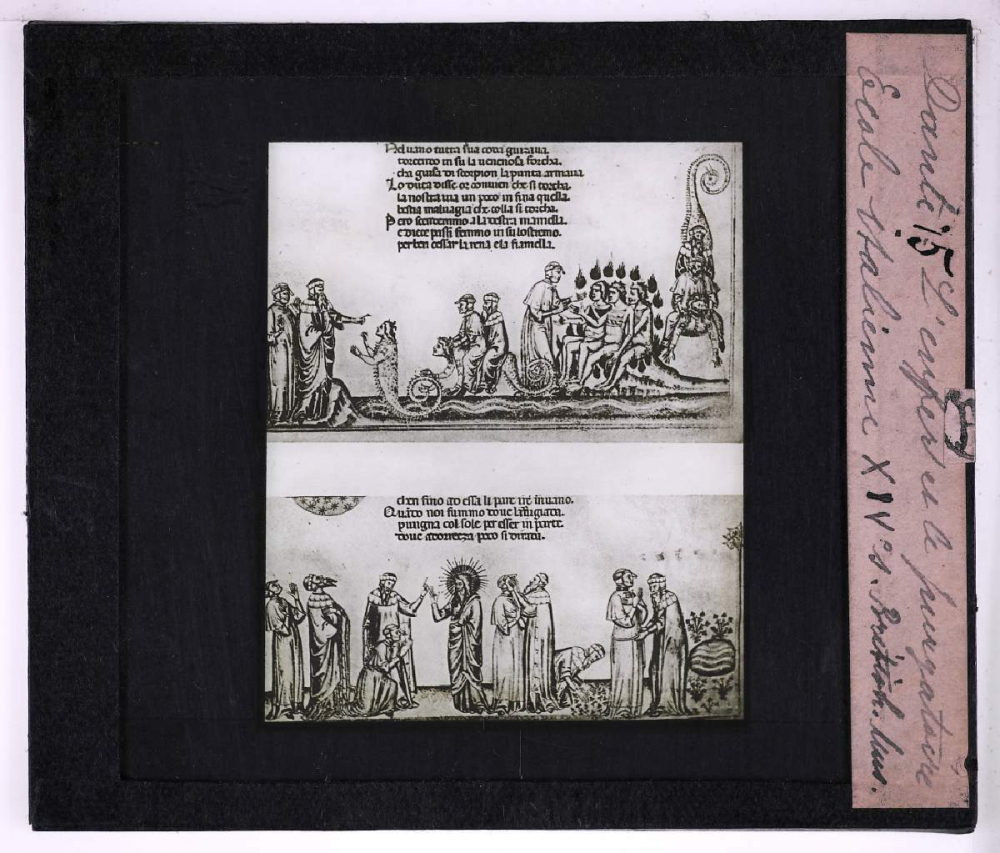 Nel uano tutta sua coda guizaua.
torcendo in su la uenenosa forcha.
cha guisa di scorpion la punta armaua
Lo duca disse or conuien che si torcha.
la nostra uia un poco in fin a quella.
bestia maluagia che colla si corcha.
Pero scendemmo a la destra mamella.
e diece passi femmo in su lo stremo.
per ben cessar la rena e la fiamella.
chen fino ad essa li pare ire inuano.
Quãdo noi fummo doue la
pugna col sole per esser in parte.
doue adorezza poco si dirada.
Dante 15 L'enfer et le purgatoire
École italienne XIVe s. British. Mus.